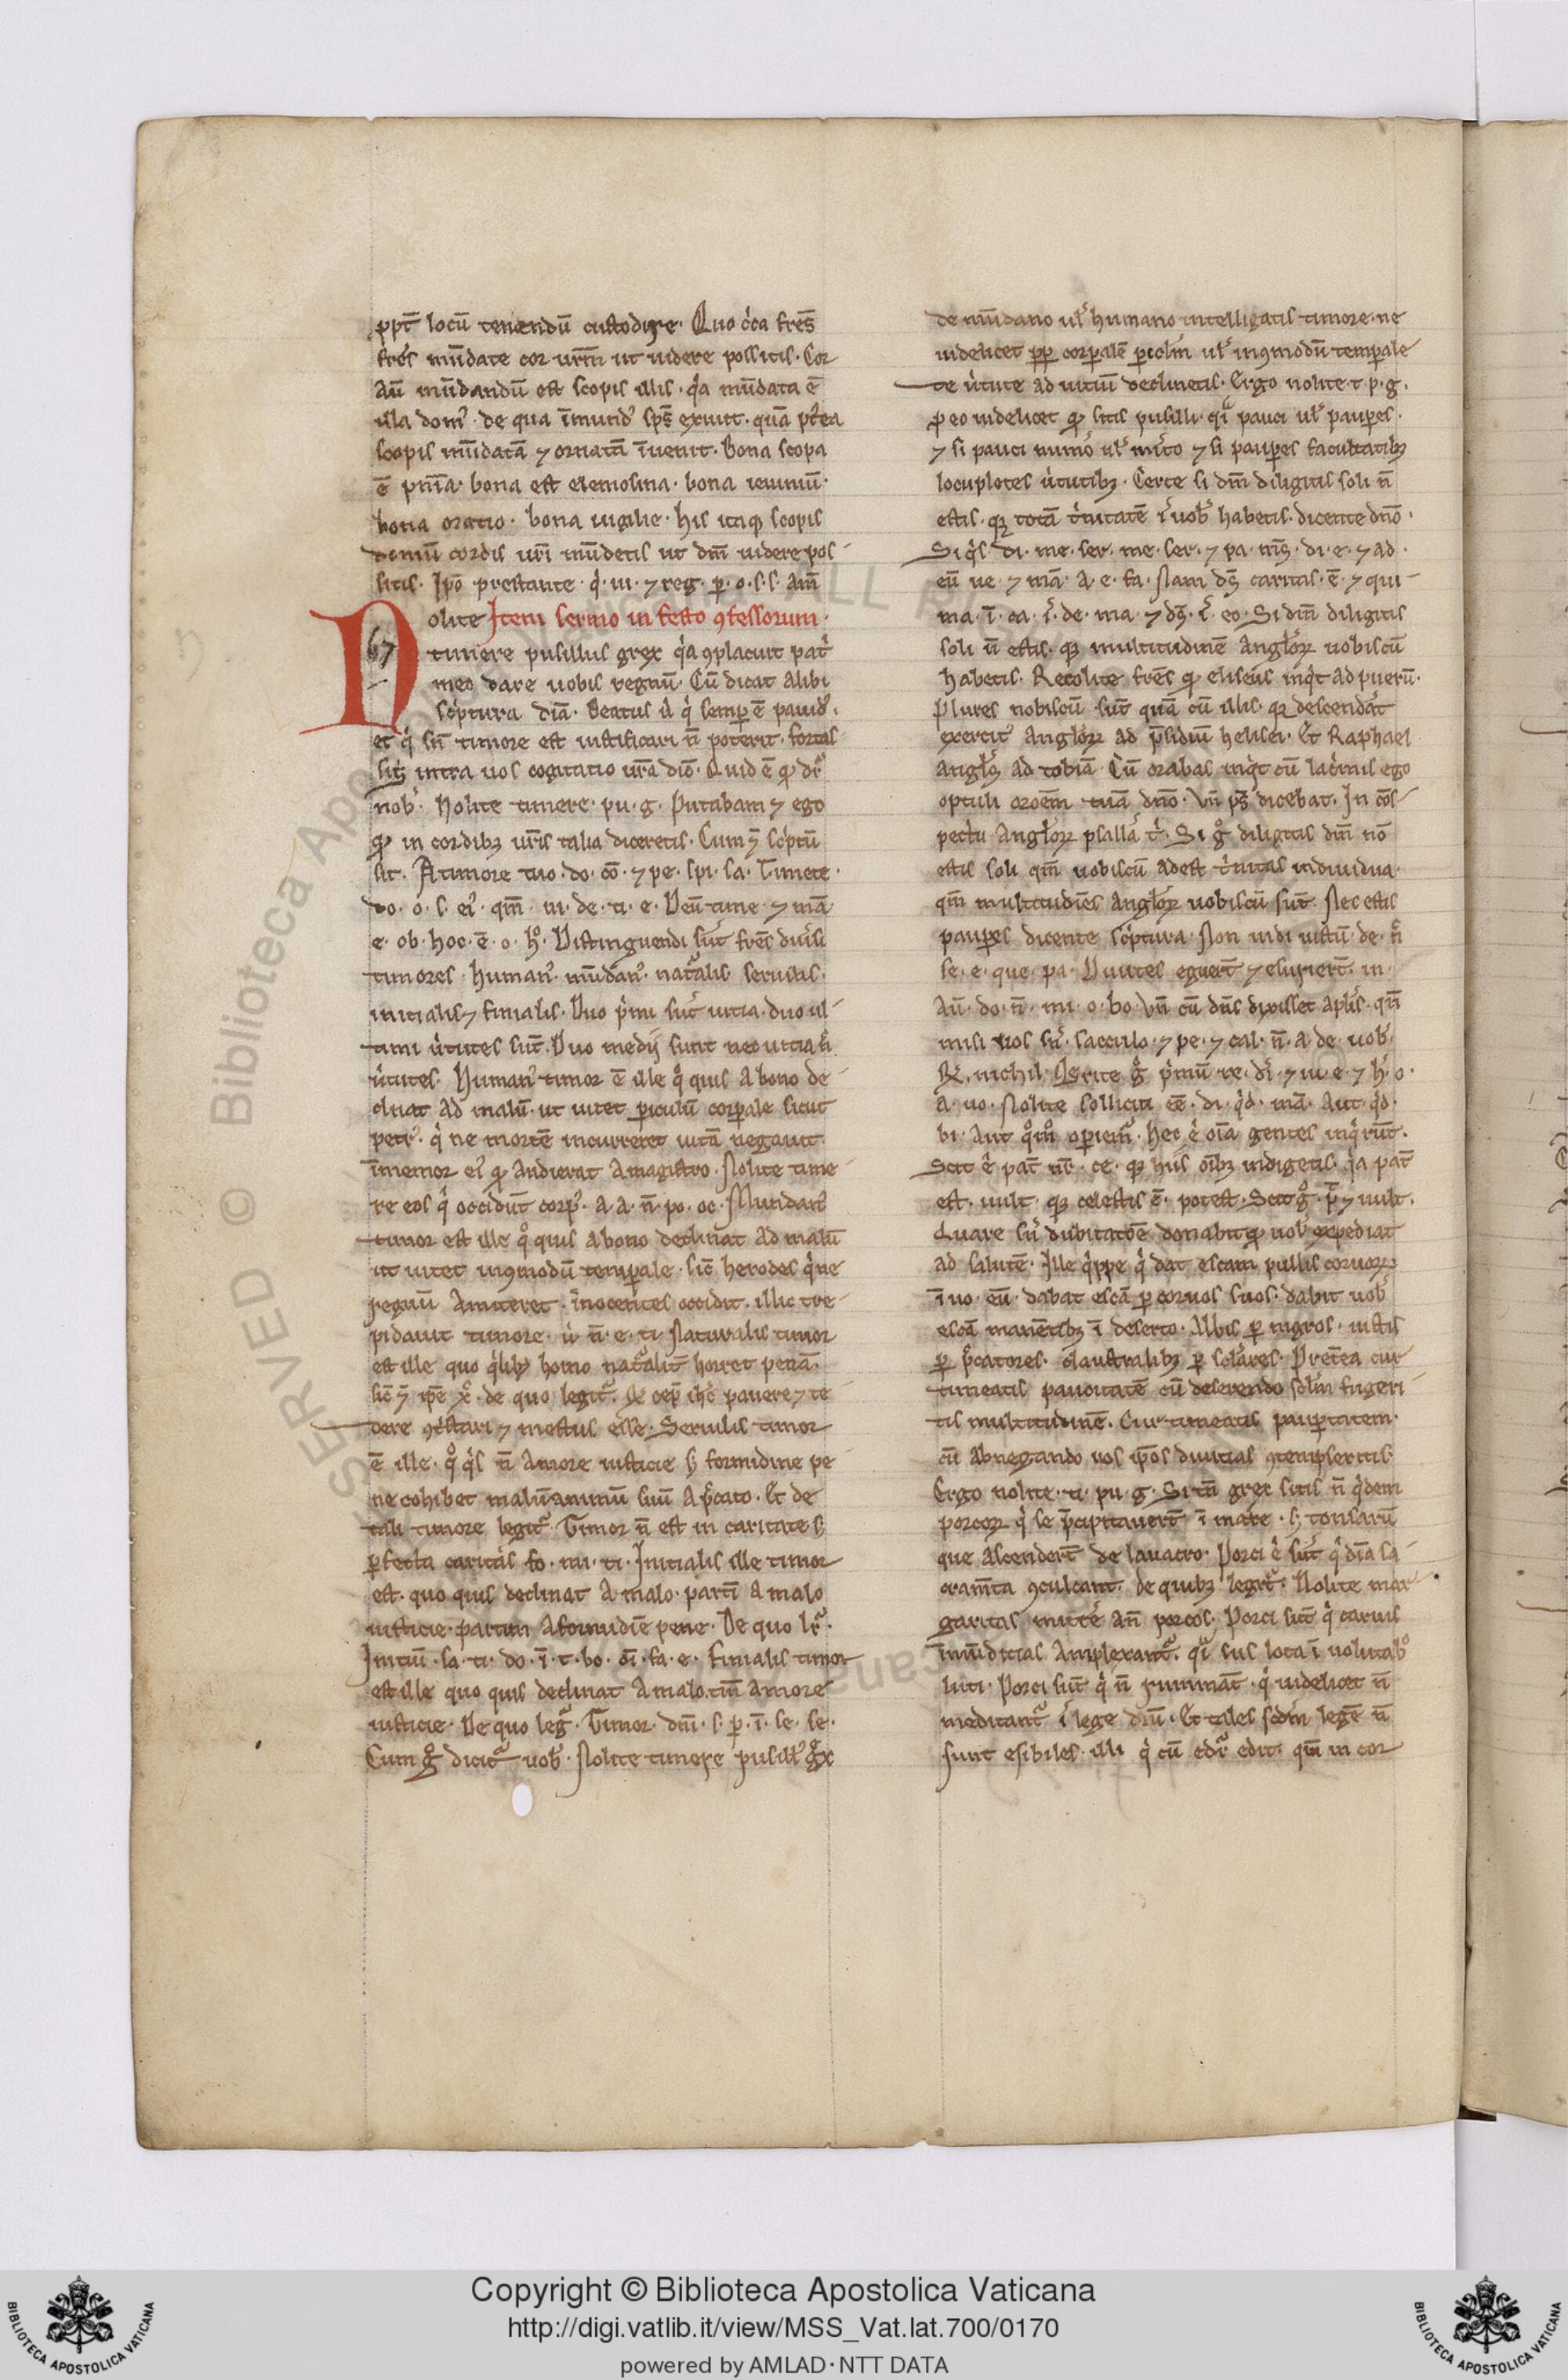 ppt̄ locū tenendū custodire. Quo c̍ca fres̄
fres̄ mūdate cor ur̄m ut uidere possitis. Cor
Aū mūdandū est scopis illis. q̍a mūdata ē
illa dom᷒. de qua īmund᷒ sp̄s exiuit. quā
scopis mūdatā ⁊ ornatā īuenit. Bona scopa
ē pn̄ia. bona est elemosina. bona ieiuniū.
bona oratio. bona uigilie. his itaq; scopis
domū cordis ur̄i mūdetis ut dm̄ uidere pos
sitis. Ip̄o prestante. q̍. ui. ⁊ reg. p. o. s. s. am̄
Nolite Item sermo in festo ꝯfessorum.
67 timere pusillus grex q̍a ꝯplacuit pat̍
meo dare uobis regnū. Cū dicat alibi
sc̍ptura diā. Beatus ù q̍ semp ē pauid᷒.
et q̍ sn̄ timore est iustificari n̄ poterit. forsas
intra uos cogitatio ur̄a dīo. Quid ē qđ dr̄
nob᷒. Nolite timere. pu. g. Putabam ⁊ ego
qđ in cordib; ur̄is talia diceretis. Cum sc̍ptū
sit. A timore tuo. do. cō. ⁊ pe. spi. sa. Timete.
do. o. s. ei᷒. qm̄. ni. de. ti. e. Deū time ⁊ mā
e. ob. hoc. ē. o. ho. Distinguendi sūt fres̄ diuˀsi
timores. human᷒. mūdan᷒. natˀalis. seruilis.
initialis ⁊ finialis. Duo p̍mi sūt uitia. duo ul
timi ùtutes sūt. Duo medij sunt nec uitia n̄
ùtutes. Human᷒ timor ē ille q̊ quis a bono de
clinat ad malū. ut uitet piculū corpale sicut
petr᷒. q̍ ne mortē incurreret uitā negauit.
īmemor ei᷒ qđ audierat a magistro. Nolite time
re eos q̍ occidūt corp᷒. a. a. n̄. po. oc. Mundan᷒
timor est ille q̊ quis a bono declinat ad malū
ut uitet inꝯmodū tempale. sic̄ herodes q̍ ne
regnū amitteret. īnocentes occidit. illic tre
pidauit timore. ù. n̄. e. ti. Naturalis timor
est ille quo q̍lib; homo natˀalit̄ horret penā.
sic̄ ⁊ ip̄e xp̄c. de quo legitˀ. cep̄ ih̄c pauere ⁊ te
dere ꝯt̍stari ⁊ mestus esse. Seruilis timor
ē ille. q̊ q̍s n̄ amore iusticie s; formidine pe
ne cohibet malū animū suū a p̄cato. Et de
tali timore legitˀ. Timor n̄ est in caritate s;
pfecta caritas fo. mi. ti. Initialis ille timor
est. quo quis declinat a malo. partī a malo
iusticie. partim a formidīe pene. De quo lrˀ.
Initiū. sa. ti. do. ī. t. bo. oī. fa. e. Finialis timor
est ille quo quis declinat a malo. tm̄ amore
iusticie. De quo legˀ. Timor. dm̄. s. p. ī. se. se.
Cum g̊ dicitˀ uob᷒. Nolite timere pusill᷒ grex
de mūdano ul̄ humano intelligatis timore. ne
uidelicet pp corpalē picl̄m ul̄ inꝯmodū tempale
te ùtute ad uitiū declinetis. Ergo nolite. t. p. g.
p eo uidelicet qđ sitis pusilli. qˀi pauci ul̄ paupes.
⁊ si pauci numˀo ul̄ mˀito ⁊ si paupes facultatib;
locupletes ùtutib;. Certe si dm̄ diligitis soli n̄
estis. q; totā t̍nitatē ī uob᷒ habetis. dicente dn̄o.
Si q̍s. di. me. ser. me. ser. ⁊ pa. ms̄. di. e. ⁊ ad.
eū ue. ⁊ mā. a. e. fa. Nam ds̄ caritas. ē. ⁊ qui
ma. ī. ca. ī. de. ma. ⁊ ds̄. ī. eo. Si dm̄ diligitis
soli n̄ estis. q; multitudinē angl̄oꝝ uobiscū
habetis. Recolite fres̄ qđ eliseus inq̍t ad puerū.
Plures nobiscū sūt quā cū illis. q; descendˀat
exercit᷒ angl̄oꝝ ad p̄sidiū helisei. Et Raphael
angl̄s ad tobiā. Cū orabas inq̍t cū lac̍mis ego
optuli oroēm tuā dn̄o. Vn̄ ps̄ dicebat. In cōs
pectu angl̄oꝝ psallā t̍. Si g̊ diligitis dm̄ nō
estis soli qm̄ uobiscū adest t̍nitas indiuidua.
qm̄ multitudīes angl̄oꝝ uobiscū sūt. Nec estis
paupes dicente sc̍ptura. Non uidi iustū. de. n̄
se. e. que. pa. Diuites eguert̄ ⁊ esuriert̄. in.
Aū. do. n̄. mi. o. bo. Vn̄ cū dn̄s dixisset apl̄is. qn̄
misi uos sn̄. sacculo. ⁊ pe. ⁊ cal. n̄. a. de. uob᷒.
nichil. Q̄rite g̊ p̍mū. re. di. ⁊ iu. e. ⁊ h. o.
a. uo. Nolite solliciti eē. di. q̍d. mā. Aut. q̍d.
bi. Aut q̊m̊ opiemˀ. hec ē oīa gentes inq̍rūt.
Scit ē pat̄ ur̄. ce. q; hiis oīb; indigetis. q̍a pat̄
est. uult. q; celestis ē. potest. Scit g̊. p̄ ⁊ uult.
Quare sn̄ dubitatōe donabit qđ uob᷒ expediat
ad salutē. Ille q̍ppe q̍ dat escam pullis coruoꝝ
ī uo. eū. dabat escā p coruos suos. dabit uob᷒
escā manētib; ī deserto. Albis p nigros. iustis
p p̄catores. claustralib; p scl̄ares. Pretˀea cur
timeatis paucitatē cū deserendo scl̄m fugeri
tis multitudinē. Cur timeatis paupertatem.
cū abnegando uos ip̄os diuitias ꝯtempseritis.
Ergo nolite. ti. pu. g. Si tn̄ grex sitis n̄ q̍dem
porcoꝝ q̍ se p̄cipitauert̄ ī mare. s; tonsarū
que ascendert̄ de lauacro. Porci ē sūt q̍ dīa sa
cram̄ta ꝯculcant. de quib; legitˀ. Nolite mar
garitas mittˀe an̄ porcos. Porci sūt q̍ carnis
īmūdicias amplexantˀ. qˀi sus lota ī uolutab᷒o
luti. Porci sūt q̍ n̄ rumināt. q̍ uidelicet n̄
meditantˀ ī lege dn̄i. Et tales scdm̄ legē n̄
sunt esibiles. illi q̍ cū edrˀ edit. qm̄ in cor
Copyright © Biblioteca Apostolica Vaticana
http://digi.vatlib.it/view/MSS_Vat.lat.700/0170
powered by AMLAD·NTT DATA